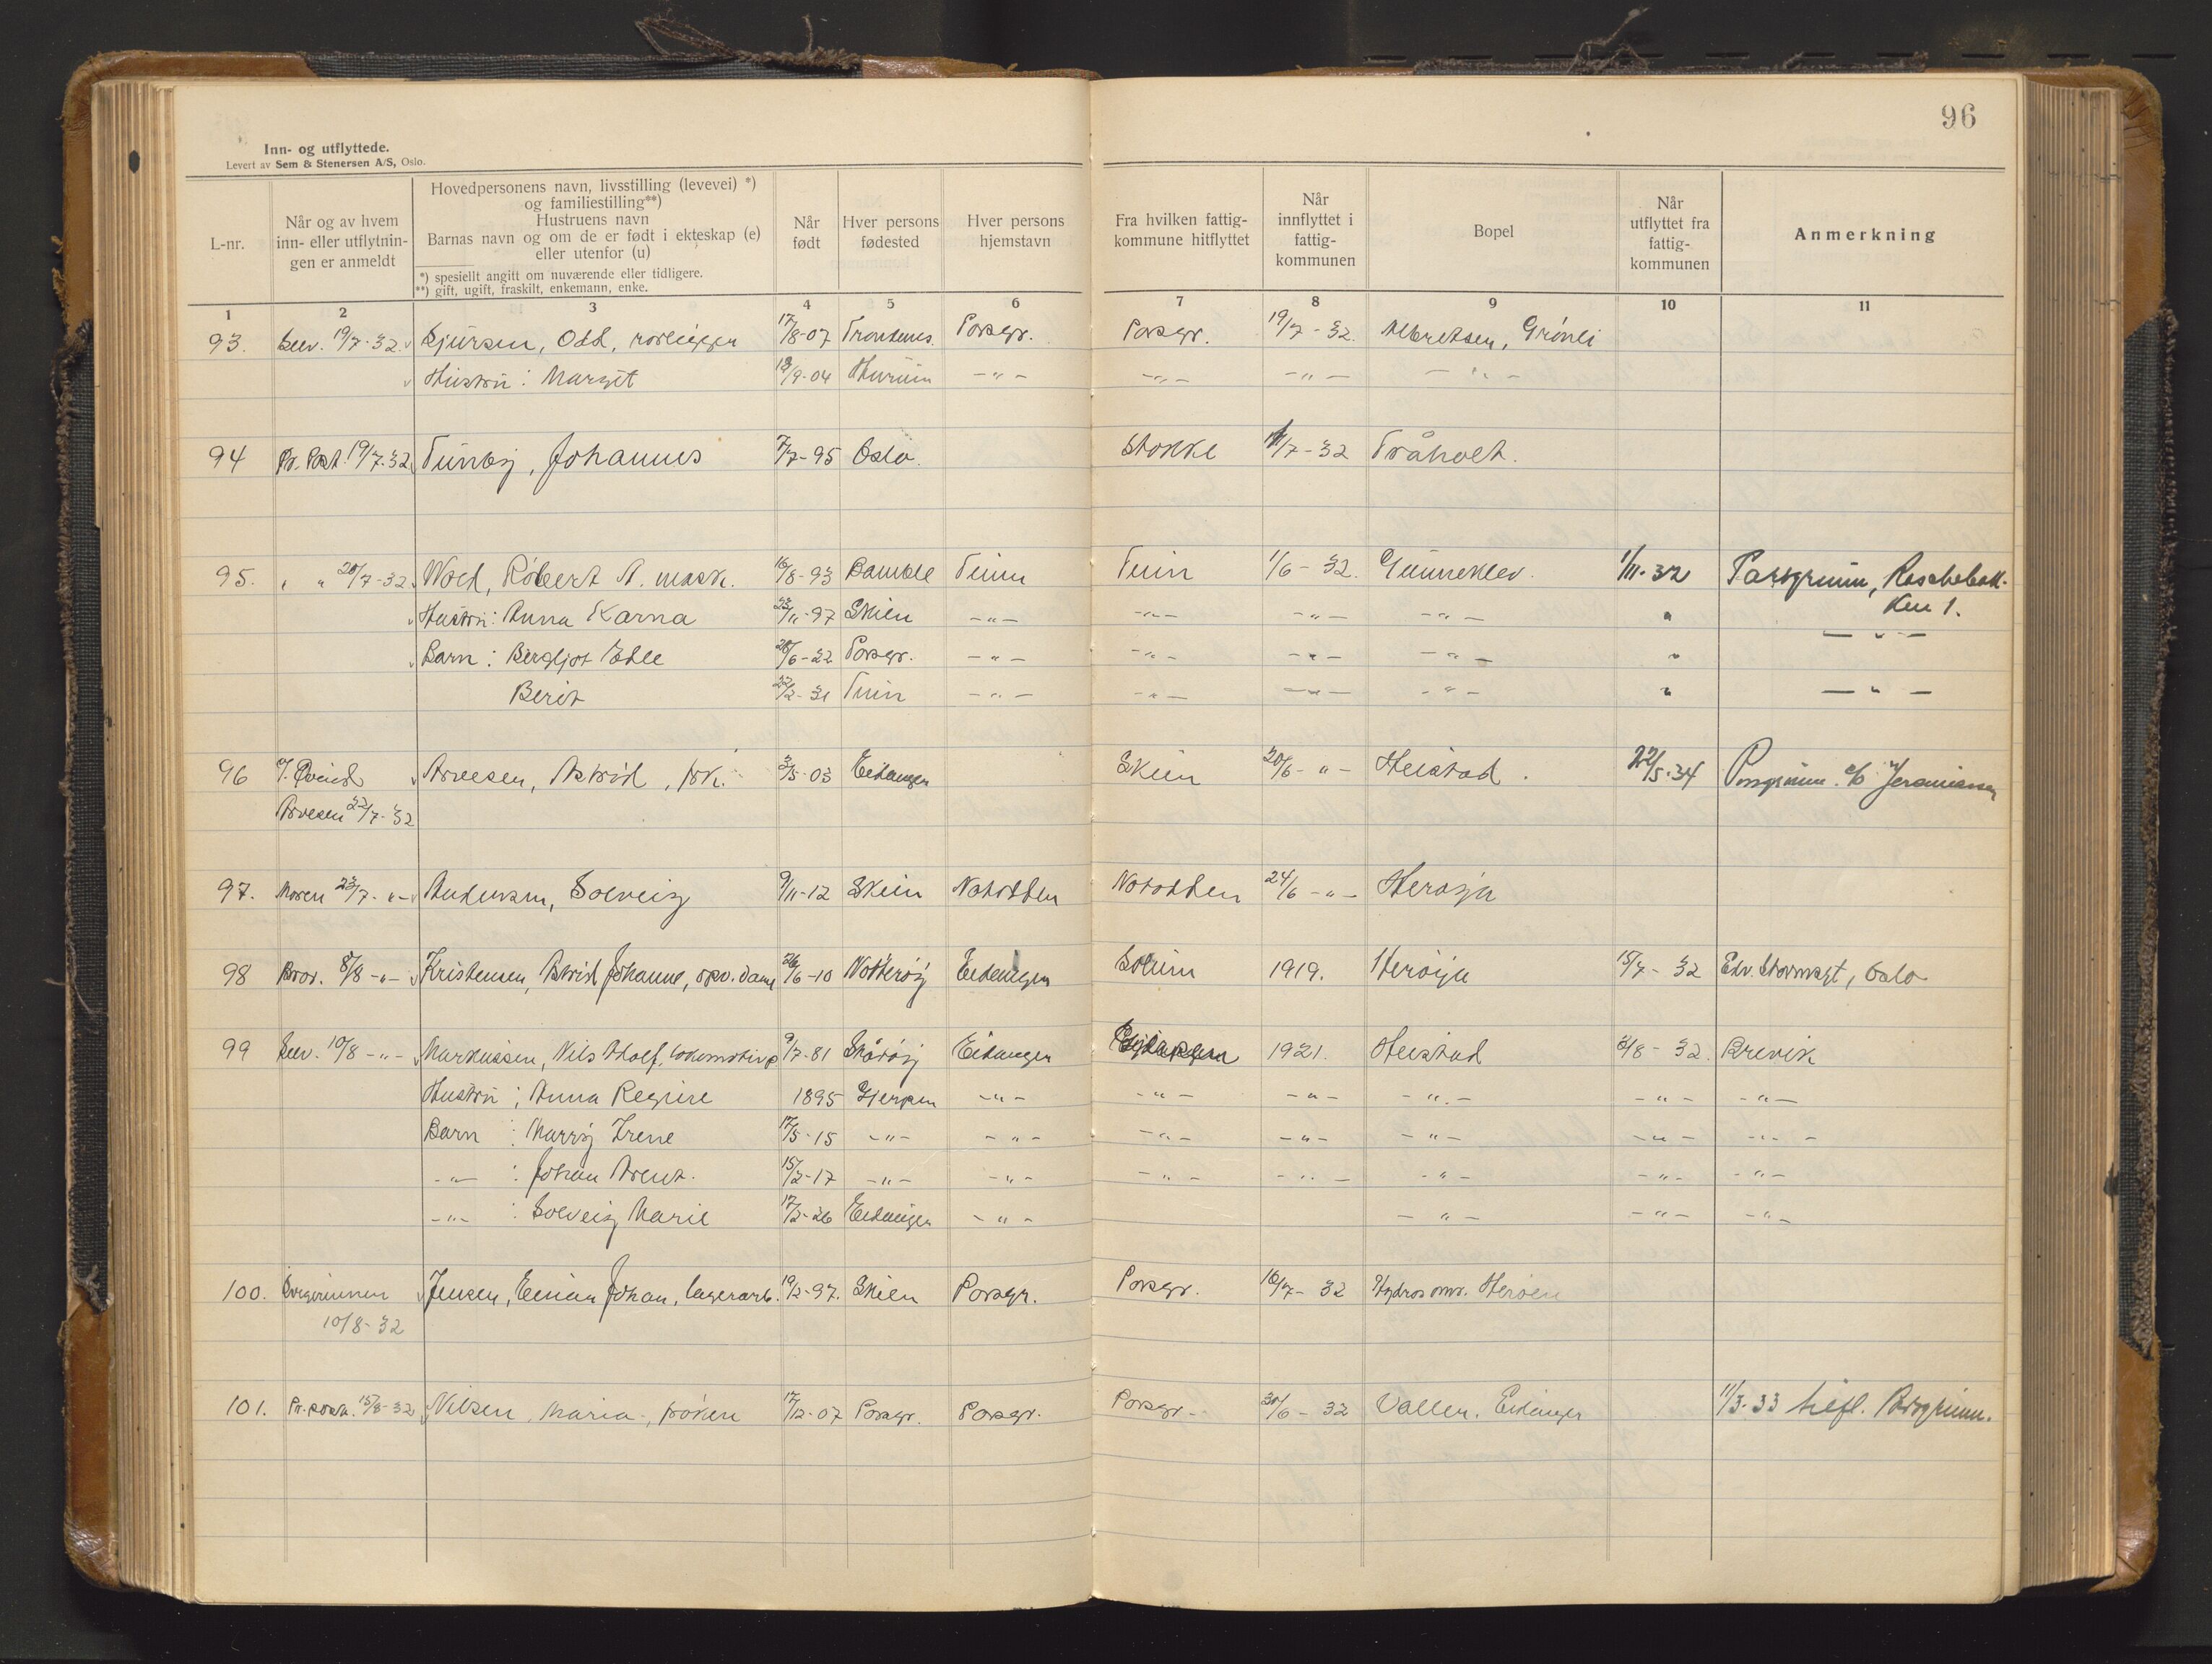 96
Inn- og utflyttede.
Levert av Sem & Stenersen A/S, Oslo.
L-nr.
Når og av hvem
inn- eller utflytnin-
gen er anmeldt
Hovedpersonens navn, livsstilling (levevei) *)
og familiestilling**)
Hustruens navn
Barnas navn og om de er født i ekteskap (e)
eller utenfor (u)
*) spesiellt angitt om nuværende eller tidligere.
**) gift, ugift, fraskilt, enkemann, enke.
Når
født
Hver persons
fødested
Hver persons
hjemstavn
Fra hvilken fattig-
kommune hitflyttet
Når
innflyttet i
fattig-
kommunen
Bopel
Når
utflyttet fra
fattig-
kommunen
Anmerkning
1 2 3 4 5 6 7 8 9 10 11
93. Selv. 19/7-32. Odd, 17/8-07 Trondenes. Porsgr. Porsgr. 19/7-32. Albretsen, Grönli
Hustru: Margit /9-04 Hurum -"- -"- -"- -"-
94 Pr. Post. 19/7.32. Tunby, Johannes 7/7-95 Oslo. Stokke /7-32 Tråholt.
95. " " 20/7-32. Wold, Robert A. mask. 16/8-93 Bamble Tinn Tinn 1/6-32. Gunneklev. 1/11-32 Porsgrunn, Raschebak-
ken 1.
Hustru: Anna Karna 23/11-97 Skien -"- -"- -"- -"- "
Barn: Bergljot Edle 20/6-22 Porsgr. -"- -"- -"- -"- " -"-
Berit 22/2-31 Tinn -"- -"- -"- -"- " -"-
96 Arvesen, Astrid, frk. 3/5-03 Eidanger Skien 20/6-"- Heistad. 22/5-34 Porsgrunn. c/o Jeremiassen
Arvesen 22/7-32
97. Moren 23/7-"- Andersen, Solveig 9/11-12 Skien Notodden Notodden 24/6-"- Heröya
98 Bror. 8/8-"- Kristensen, Astrid Johanne, opv. dame 26/6-10 Nötteröy Eidanger Solum 1919. Heröya 15/7-32 Edv. Stormsgt, Oslo
99 Selv. 10/8-"- Markussen, Nils Adolf, lokomotivf. 9/7-81 Skåtöy Eidanger 1921. Heistad /8-32. Brevik
Hustru: Anna Regine 1895 Gjerpen -"- -"- -"- -"- -"- -"-
Barn: Marry Irene 17/5-15 -"- -"- -"- -"- -"- -"- -"-
-"-: Johan Arent. 15/2-17 -"- -"- -"- -"- -"- -"- -"-
-"-: Solveig Marie 17/2-26 Eidanger -"- -"- -"- -"-
100. Svigerinnen Jensen, Einar Johan, lagerarb. 19/2-97. Skien Porsgr. Porsgr. 16/7-32 Hydros omr. Heröen
10/8-32
101. Pr. post. 15/8-32 Nilsen, Maria, fröken 17/12-07 Porsgr. Porsgr. Porsgr. 30/6-32 Vallen. Eidanger 11/3-33 tilfl. Porsgrunn.